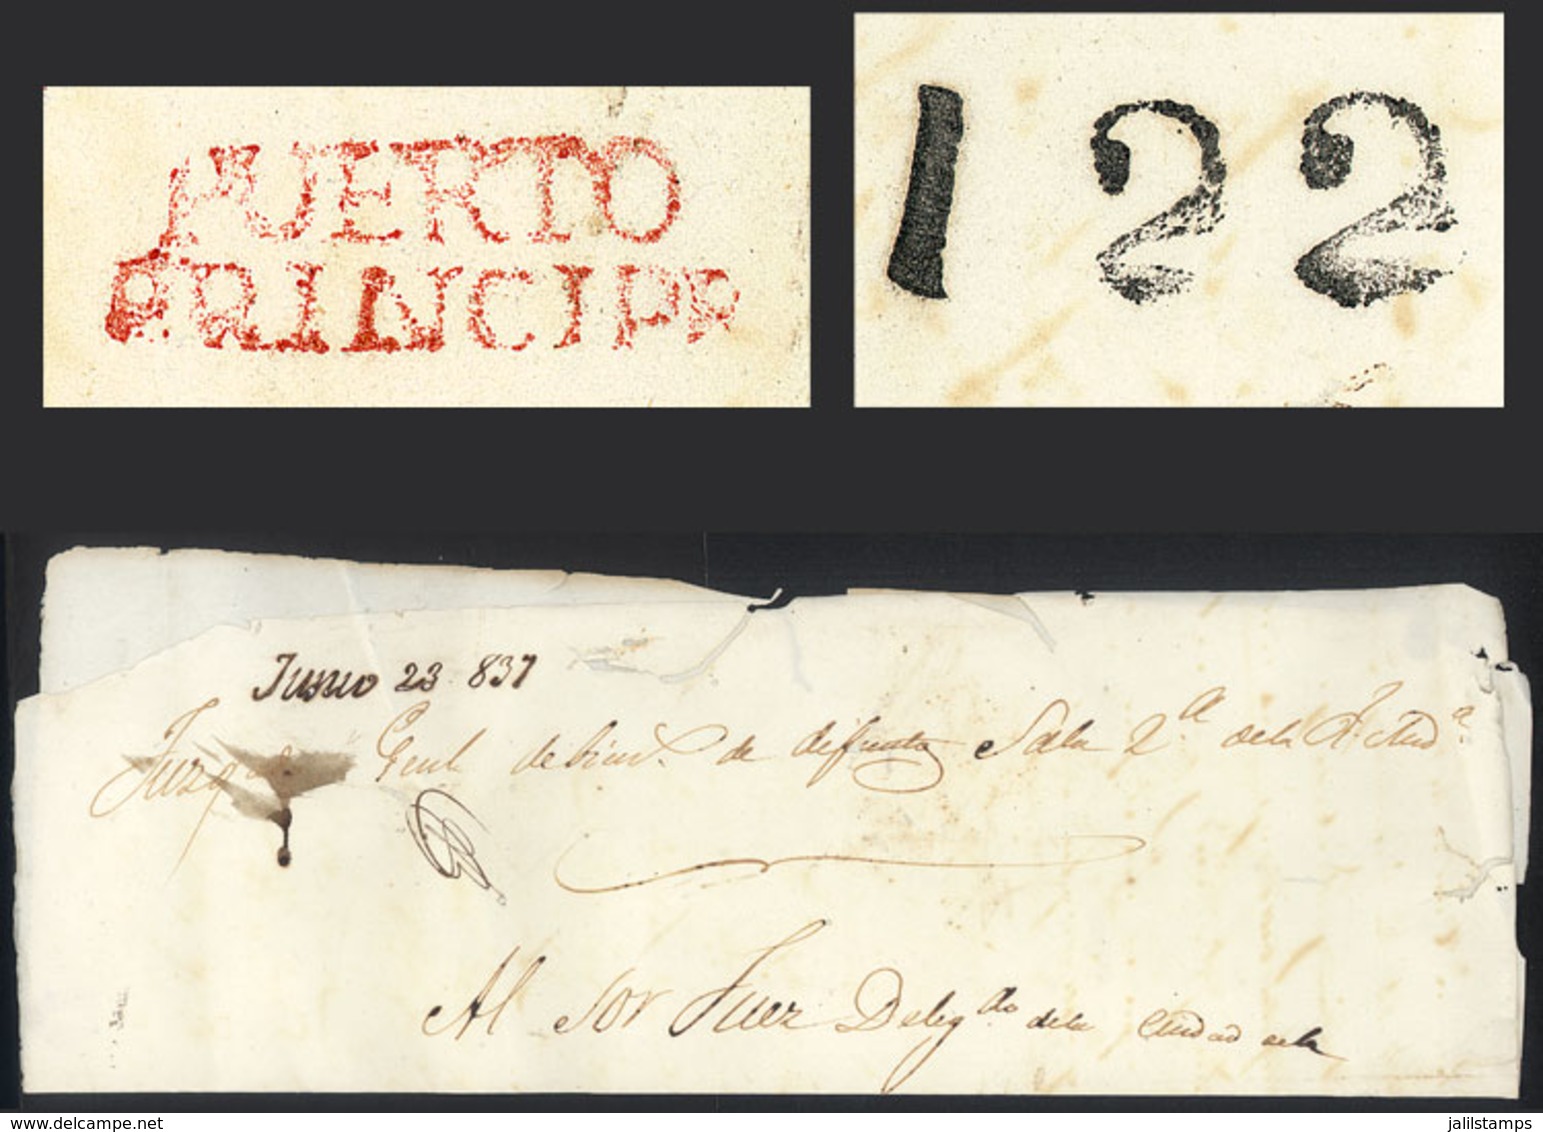 PUERTO
PRINCIPE
122
Junio 23 837
Juzg Genl de bien.s de difuntos Sala 2ª de la Rl Audª
Al Sor Juez Delegdo de la Ciudad de la
www.delcampe.net
jalilstamps